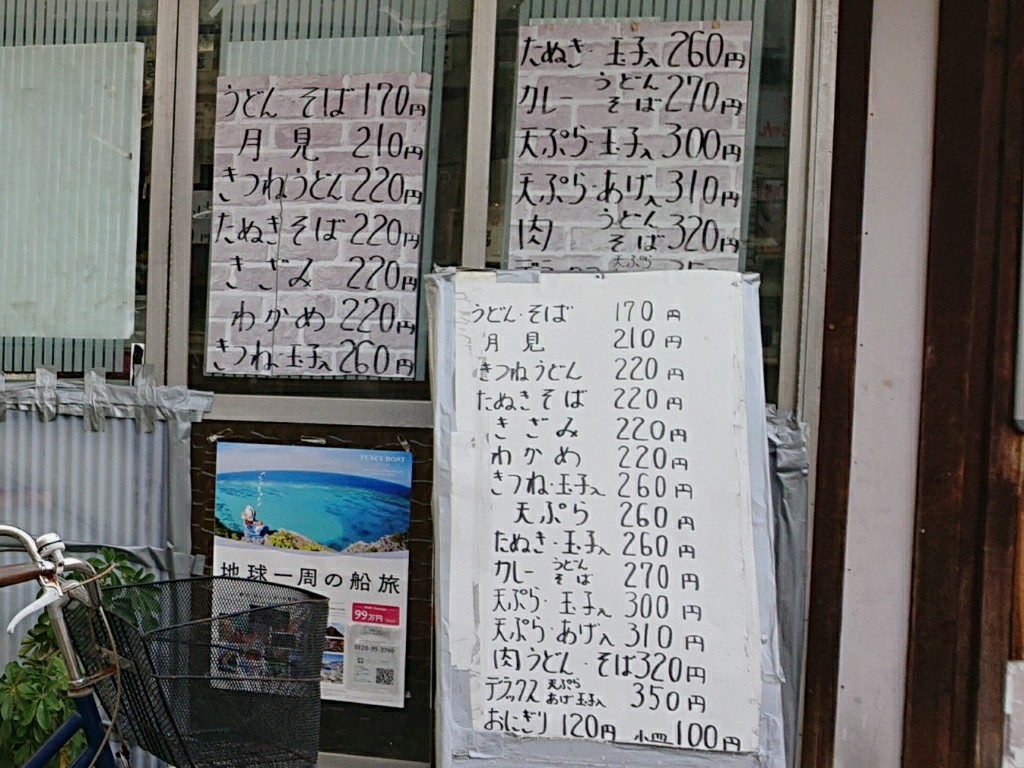 うどん・そば170円
月見 210円
きつねうどん220円
たぬきそば220円
きざみ 220円
わかめ 220円
きつね・玉子入260円
たぬき・玉子入260円
カレー うどん そば270円
天ぷら・玉子入300円
天ぷら・あげ入310円
肉 うどん そば320円
うどん・そば 170円
月見 210円
きつねうどん 220円
たぬきそば 220円
きざみ 220円
わかめ 220円
きつね・玉子入 260円
天ぷら 260円
たぬき・玉子入 260円
カレー うどん そば 270円
天ぷら・玉子入 300円
天ぷら・あげ入 310円
肉うどん・そば320円
デラックス 天ぷら あげ玉子入 350円
おにぎり 120円 小皿100円
PEACE BOAT
地球一周の船旅
99万円
0120-95-3740